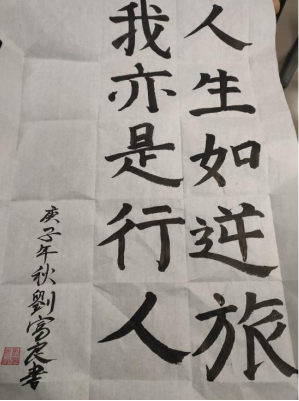 人生如逆旅
我亦是行人
庚子年秋劉富良書